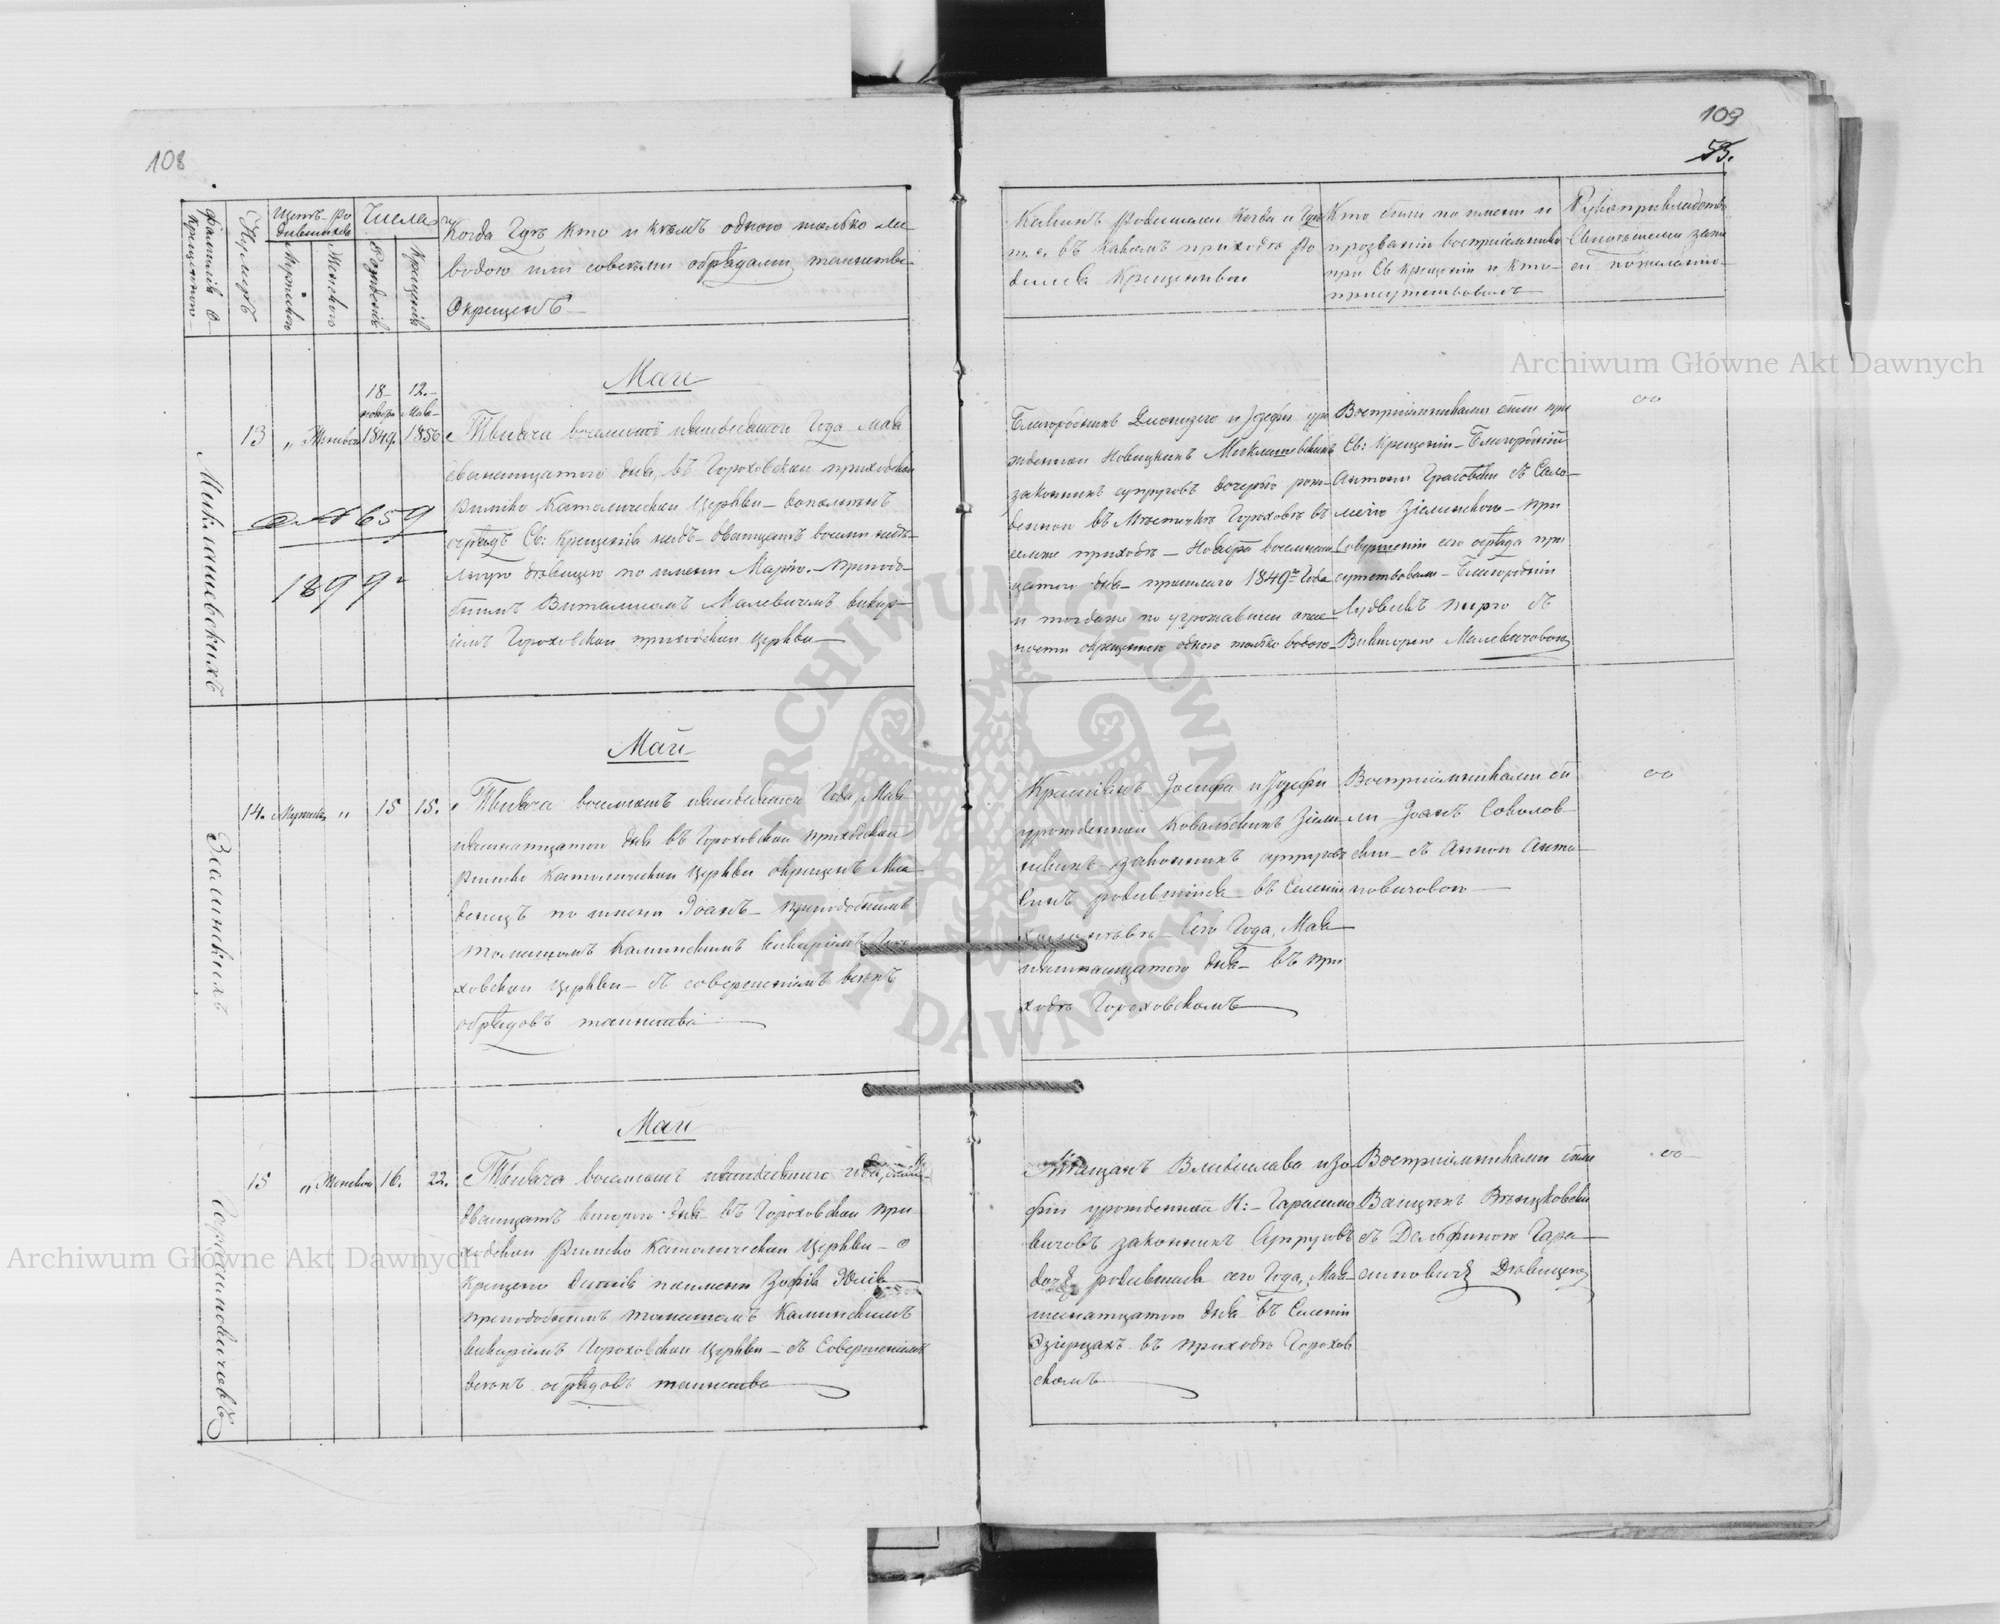 108
Фамилія О-
крещенного
Нумеръ
Щетъ Ро
дившихся
Мужеского
Женского
Числа
Рожденія
Крещенія
Когда Гдѣ кто и кѣмъ одною только
водою или со всѣми обрядами таинства
Окрещенъ
Май
Миклашевскихъ
13 „ Женска 18 ноября 1849. 12. Мая 1850
Тысяча восемьсотъ пятьдесятого Года Мая
двѣнатцатого дня, въ Гороховской приходской
Римско Католической Церкви дополненъ
обрядъ Св: Крещенія надъ дватцать восьми недѣ
льную дѣвицею по имени Маріею преподо
бнымъ Виталисомъ Малевичемъ викар
іемъ Гороховской приходской Церкви
№ 659
1899
Май
Зіелинскихъ
14. Мужеска „ 15 15.
Тысяча восемьсотъ пятьдесятого Года, Мая
пятнатцатого дня въ Гороховской приходской
Римско Католической Церкви окрещенъ Мла
денецъ по имени Іоанъ преподобнымъ
Томашомъ Калинскимъ викаріемъ Горо
ховской Церкви съ совершеніемъ всѣхъ
обрядовъ таинства
Май
Гарасимовичовъ
15 „ Женска 16. 22.
Тысяча восемьсотъ пятьдесятого года, Мая
двадцать второго дня въ Гороховской при
ходской Римско Католической Церкви о
крещено дитя именем Зофія Юлія
преподобнымъ Томашомъ Калинскимъ
викаріемъ Гороховской Церкви съ Совершеніемъ
всѣхъ обрядовъ таинства
109
53.
Какихъ Родителей Когда и Гдѣ
т. е. въ какомъ приходѣ Ро
дился Крещенный
Кто были по имени и
прозванію восприемники
при Св Крещеніи и кто
присутствовалъ
Рукоприкладство
Благородныхъ Діонизего и Іозефы уро
жденной Новицкихъ Миклашевскихъ
законныхъ супруговъ дочерью рож
денной въ Мѣстечкѣ Гороховѣ въ
семже приходѣ Ноября восемнат
цатого дня прошлаго 1849го Года
и тогдаже по угрожавшей опас
ности окрещенною одною только водою
Восприемниками были при
Св: Крещеніи Благородній
Антони съ Сало
меею Зіелинскою при
Совершеніи сего обряда при
сутствовали Благородній
Лудвикъ съ
Викторею Малевичовою
оо
Крестьянъ Іосифа и Іозефы
урожденной Ковальскихъ Зіели
нскихъ законныхъ супруговъ
Сынъ родившійся въ Селеніи
Сего Года, Мая
пятнатцатого дня въ при
ходѣ Гороховскомъ
Восприемниками бы
ли Іоанъ Соколов
ски съ Анною Анто
новичовою
оо
Мѣщанъ Владислава и Зо
фіи урожденной Н: Гарасимо
вичовъ законныхъ Супруговъ
дочь родившаяся сего Года, Мая
шестнатцатого дня въ Селеніи
въ приходѣ Горохов
скомъ
Восприемниками были
съ Дельфиною Гара
симовичъ Дѣвицею
оо
Archiwum Główne Akt Dawnych
Archiwum Główne Akt Dawnych
ARCHIWUM GŁÓWNE AKT DAWNYCH